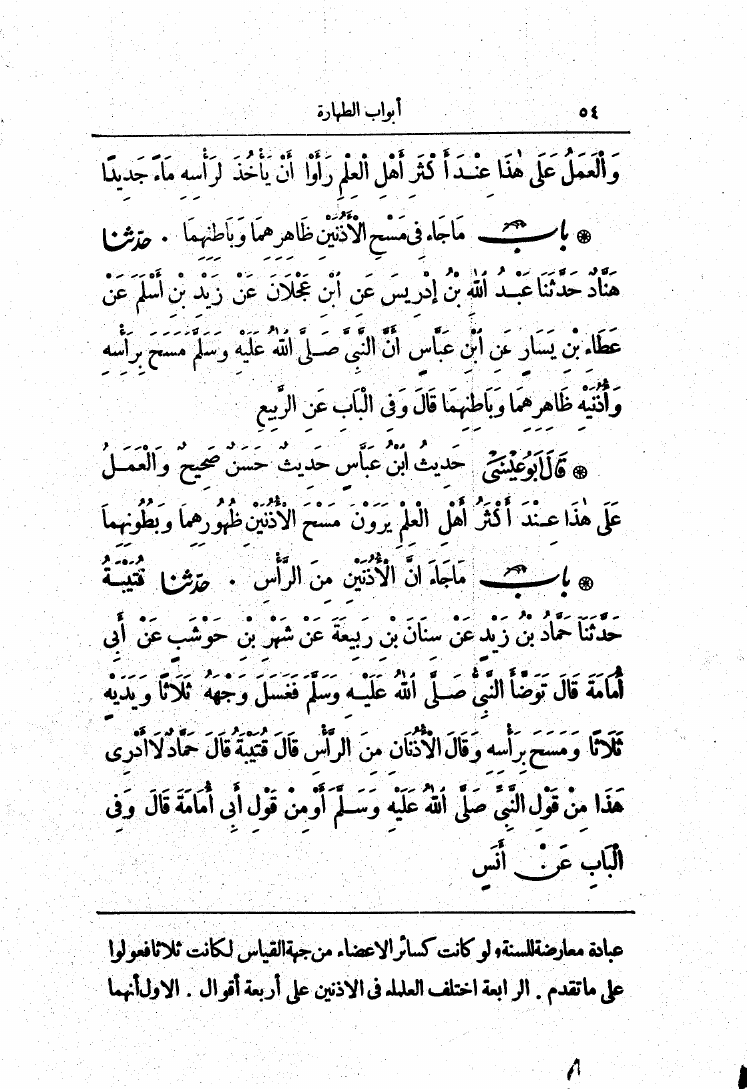 ٥٤
أبواب الطهارة
وَالْعَمَلُ عَلَى هٰذَا عِنْدَ أَكْثَرِ أَهْلِ الْعِلْمِ رَأَوْا أَنْ يَأْخُذَ لِرَأْسِهِ مَاءً جَدِيدًا
بابٌ مَاجَاءَ فِى مَسْحِ الْأُذُنَيْنِ ظَاهِرِهِمَا وَبَاطِنِهِمَا . حدثنا
هَنَّادٌ حَدَّثَنَا عَبْدُ اللهِ بْنُ إِدْرِيسَ عَنِ ابْنِ عَجْلَانَ عَنْ زَيْدِ بْنِ أَسْلَمَ عَنْ
عَطَاءِ بْنِ يَسَارٍ عَنِ ابْنِ عَبَّاسٍ أَنَّ النَّبِىَّ صَلَّى اللهُ عَلَيْهِ وَسَلَّمَ مَسَحَ بِرَأْسِهِ
وَأُذُنَيْهِ ظَاهِرِهِمَا وَبَاطِنِهِمَا قَالَ وَفِى الْبَابِ عَنِ الرُّبَيِّعِ
قَالَ أَبُو عِيْسَى حَدِيثُ ابْنِ عَبَّاسٍ حَدِيثٌ حَسَنٌ صَحِيحٌ وَالْعَمَلُ
عَلَى هٰذَا عِنْدَ أَكْثَرِ أَهْلِ الْعِلْمِ يَرَوْنَ مَسْحَ الْأُذُنَيْنِ ظُهُورِهِمَا وَبُطُونِهِمَا
بابٌ مَاجَاءَ انَّ الْأُذُنَيْنِ مِنَ الرَّأْسِ . حدثنا قُتَيْبَةُ
حَدَّثَنَا حَمَّادُ بْنُ زَيْدٍ عَنْ سِنَانَ بْنِ رَبِيعَةَ عَنْ شَهْرِ بْنِ حَوْشَبٍ عَنْ أَبِى
أُمَامَةَ قَالَ تَوَضَّأَ النَّبِىُّ صَلَّى اللهُ عَلَيْهِ وَسَلَّمَ فَغَسَلَ وَجْهَهُ ثَلَاثًا وَيَدَيْهِ
ثَلَاثًا وَمَسَحَ بِرَأْسِهِ وَقَالَ الْأُذُنَانِ مِنَ الرَّأْسِ قَالَ قُتَيْبَةُ قَالَ حَمَّادٌ لَا أَدْرِى
هَذَا مِنْ قَوْلِ النَّبِىِّ صَلَّى اللهُ عَلَيْهِ وَسَلَّمَ أَوْ مِنْ قَوْلِ أَبِى أُمَامَةَ قَالَ وَفِى
الْبَابِ عَنْ أَنَسٍ
عبادة معارضة للسنة ولو كانت كسائر الاعضاء من جهة القياس لكانت ثلاثا فعولوا
على ما تقدم . الرابعة اختلف العلماء فى الاذنين على أربعة أقوال . الاول أنهما